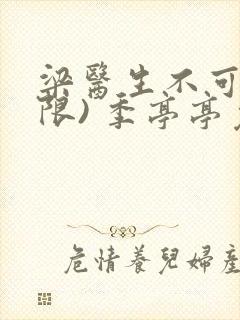 梁醫生不可
限)季亭亭
危情養兒婦產